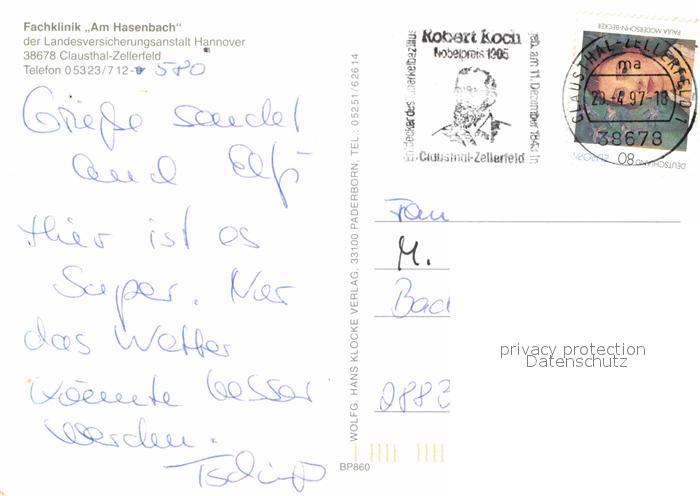 Fachklinik „Am Hasenbach"
der Landesversicherungsanstalt Hannover
38678 Clausthal-Zellerfeld
Telefon 05323/712- 580
Grüße sendet
und Elfi
Hier ist es
Super. Nur
das Wetter
könnte besser
werden.
Tschüß
WOLFG. HANS KLOCKE VERLAG, 33100 PADERBORN, TEL.: 05251/62614
BP860
Robert Koch
Nobelpreis 1905
Entdecker des
geb. am 11. Dezember 1843 in
Clausthal-Zellerfeld
PAULA MODERSOHN-BECKER
DEUTSCHLAND 80
EUROPA
CLAUSTHAL-ZELLERFELD 1
ma
29.-4.97-18
38678
Frau
M.
Bad
privacy protection
Datenschutz